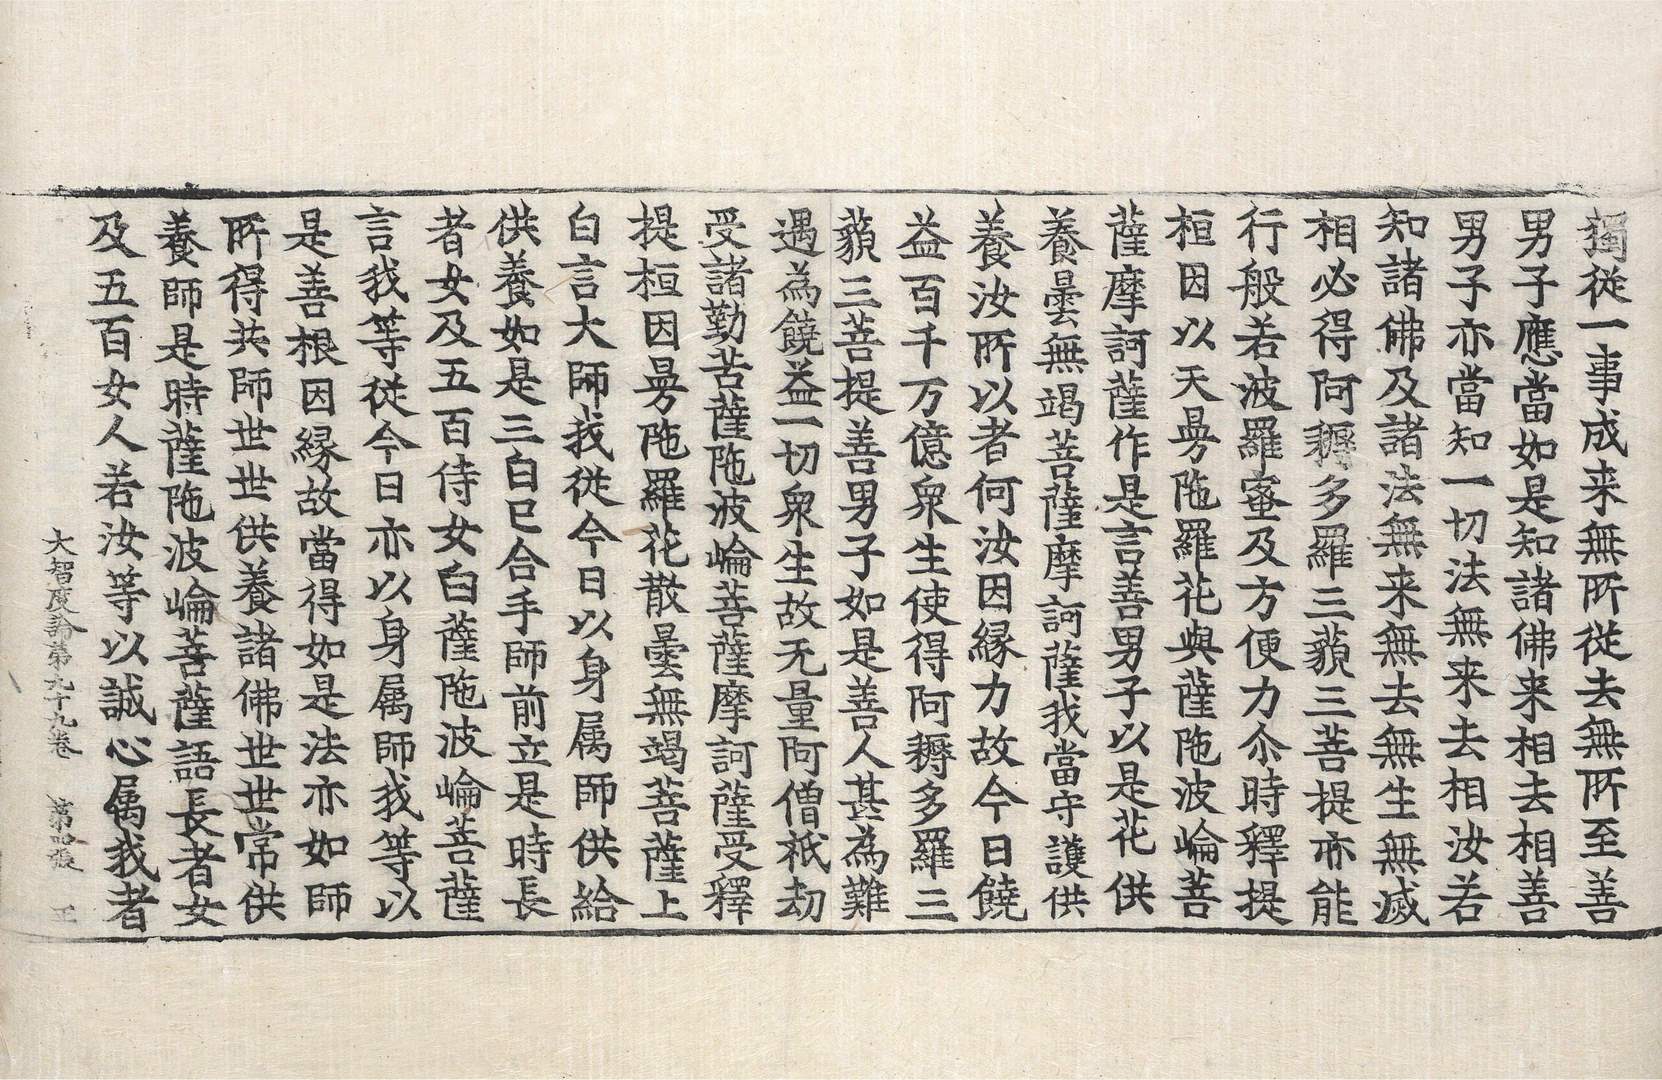 獨從一事成来無所從去無所至善
男子應當如是知諸佛来相去相善
男子亦當知一切法無来去相汝若
知諸佛及諸法無来無去無生無滅
相必得阿耨多羅三藐三菩提亦能
行般若波羅蜜及方便力尒時釋提
桓因以天曼陁羅花與薩陁波崘菩
薩摩訶薩作是言善男子以是花供
養曇無竭菩薩摩訶薩我當守護供
養汝所以者何汝因縁力故今日饒
益百千万億衆生使得阿耨多羅三
藐三菩提善男子如是善人甚為難
遇為饒益一切衆生故无量阿僧祇劫
受諸勤苦薩陁波崘菩薩摩訶薩受釋
提桓因曼陁羅花散曇無竭菩薩上
白言大師我從今日以身属師供給
供養如是三白已合手師前立是時長
者女及五百侍女白薩陁波崘菩薩
言我等從今日亦以身属師我等以
是善根因縁故當得如是法亦如師
所得共師世世供養諸佛世世常供
養師是時薩陁波崘菩薩語長者女
及五百女人若汝等以誠心属我者
大智度論第九十九卷 第 張